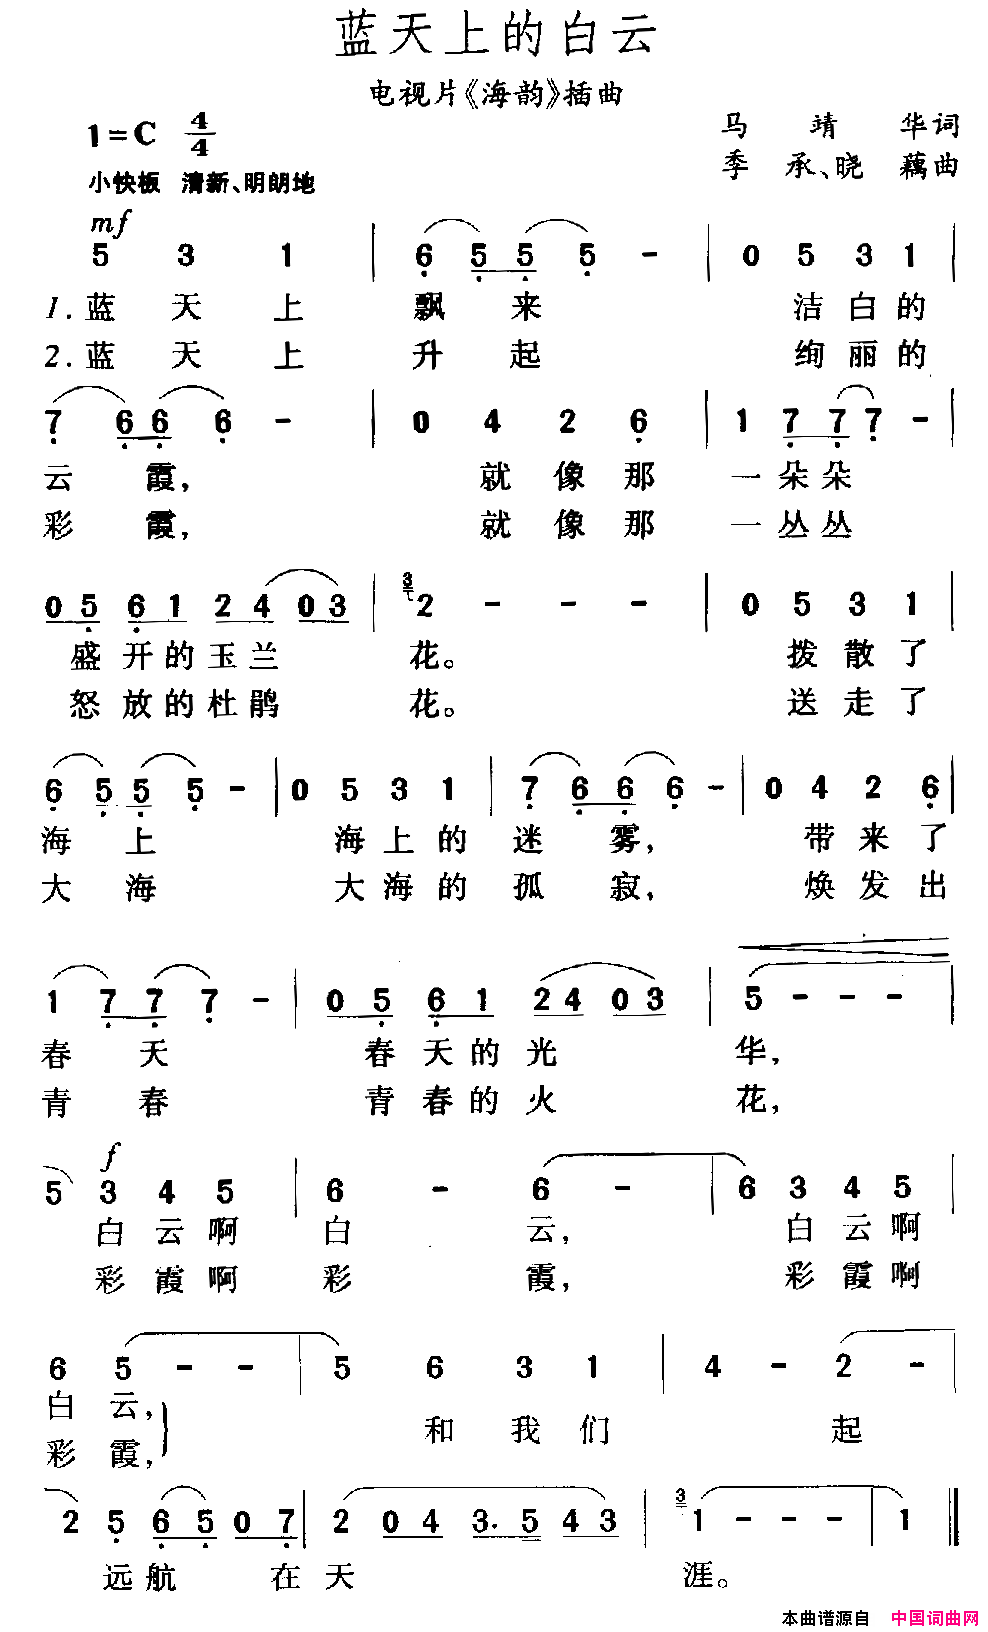 蓝天上的白云
电视片《海韵》插曲
1=C 4/4
马靖华词
季承、晓藕曲
小快板 清新、明朗地
mf
5 3 1 | 6 5 5 5 - | 0 5 3 1 |
1.蓝天上飘来 洁白的
2.蓝天上升起 绚丽的
7 6 6 6 - | 0 4 2 6 | 1 7 7 7 - |
云霞, 就像那一朵朵
彩霞, 就像那一丛丛
0 5 6 1 2 4 0 3 | 3 2 - - - | 0 5 3 1 |
盛开的玉兰花。 拨散了
怒放的杜鹃花。 送走了
6 5 5 5 - | 0 5 3 1 | 7 6 6 6 - | 0 4 2 6 |
海上 海上的迷雾, 带来了
大海 大海的孤寂, 焕发出
1 7 7 7 - | 0 5 6 1 2 4 0 3 | 5 - - - |
春天 春天的光华,
青春 青春的火花,
f
5 3 4 5 | 6 - 6 - | 6 3 4 5 |
白云啊白云, 白云啊
彩霞啊彩霞, 彩霞啊
6 5 - - | 5 6 3 1 | 4 - 2 - |
白云,
彩霞,
和我们起
2 5 6 5 0 7 | 2 0 4 3. 5 4 3 | 3 1 - - - | 1 ‖
远航在天涯。
本曲谱源自 中国词曲网